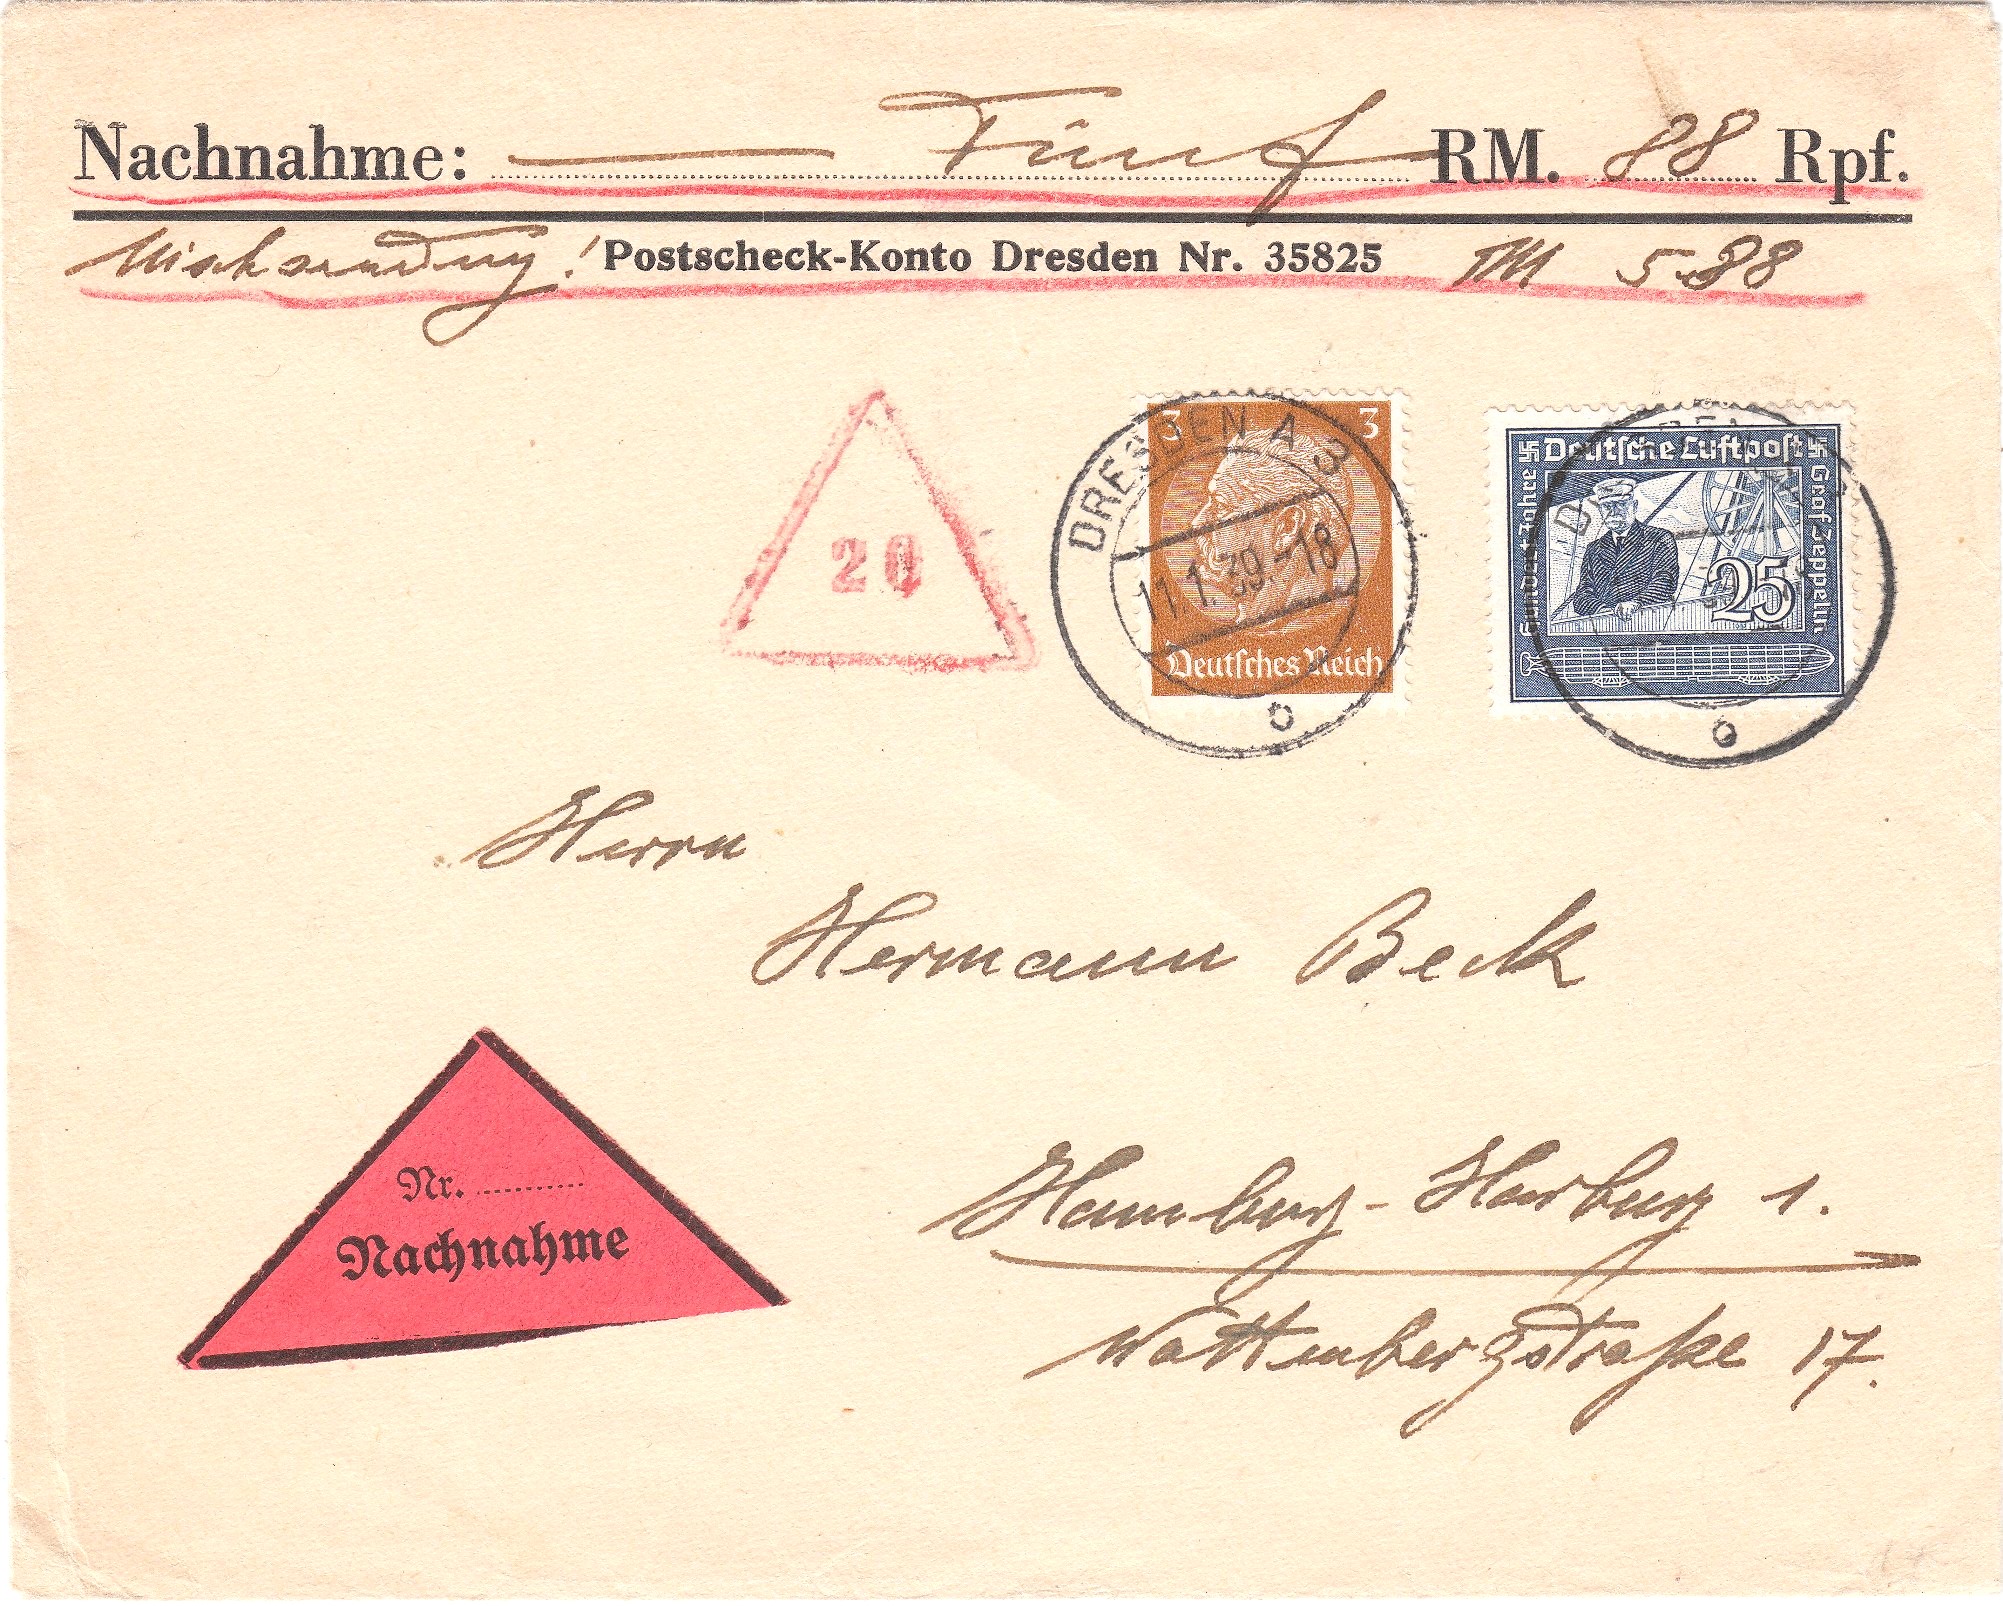 Nachnahme: Fünf RM. 88 Rpf.
Mischsendung! Postscheck-Konto Dresden Nr. 35825 RM 5.88
20
DRESDEN A 3
11.1.39.-18
b
3 3
Deutsches Reich
Deutsche Luftpost
Hundert Jahre
Graf Zeppelin
25
b
Herrn
Hermann Beck
Hamburg-Harburg 1.
Wattenbergstraße 17.
Nr. ..........
Nachnahme